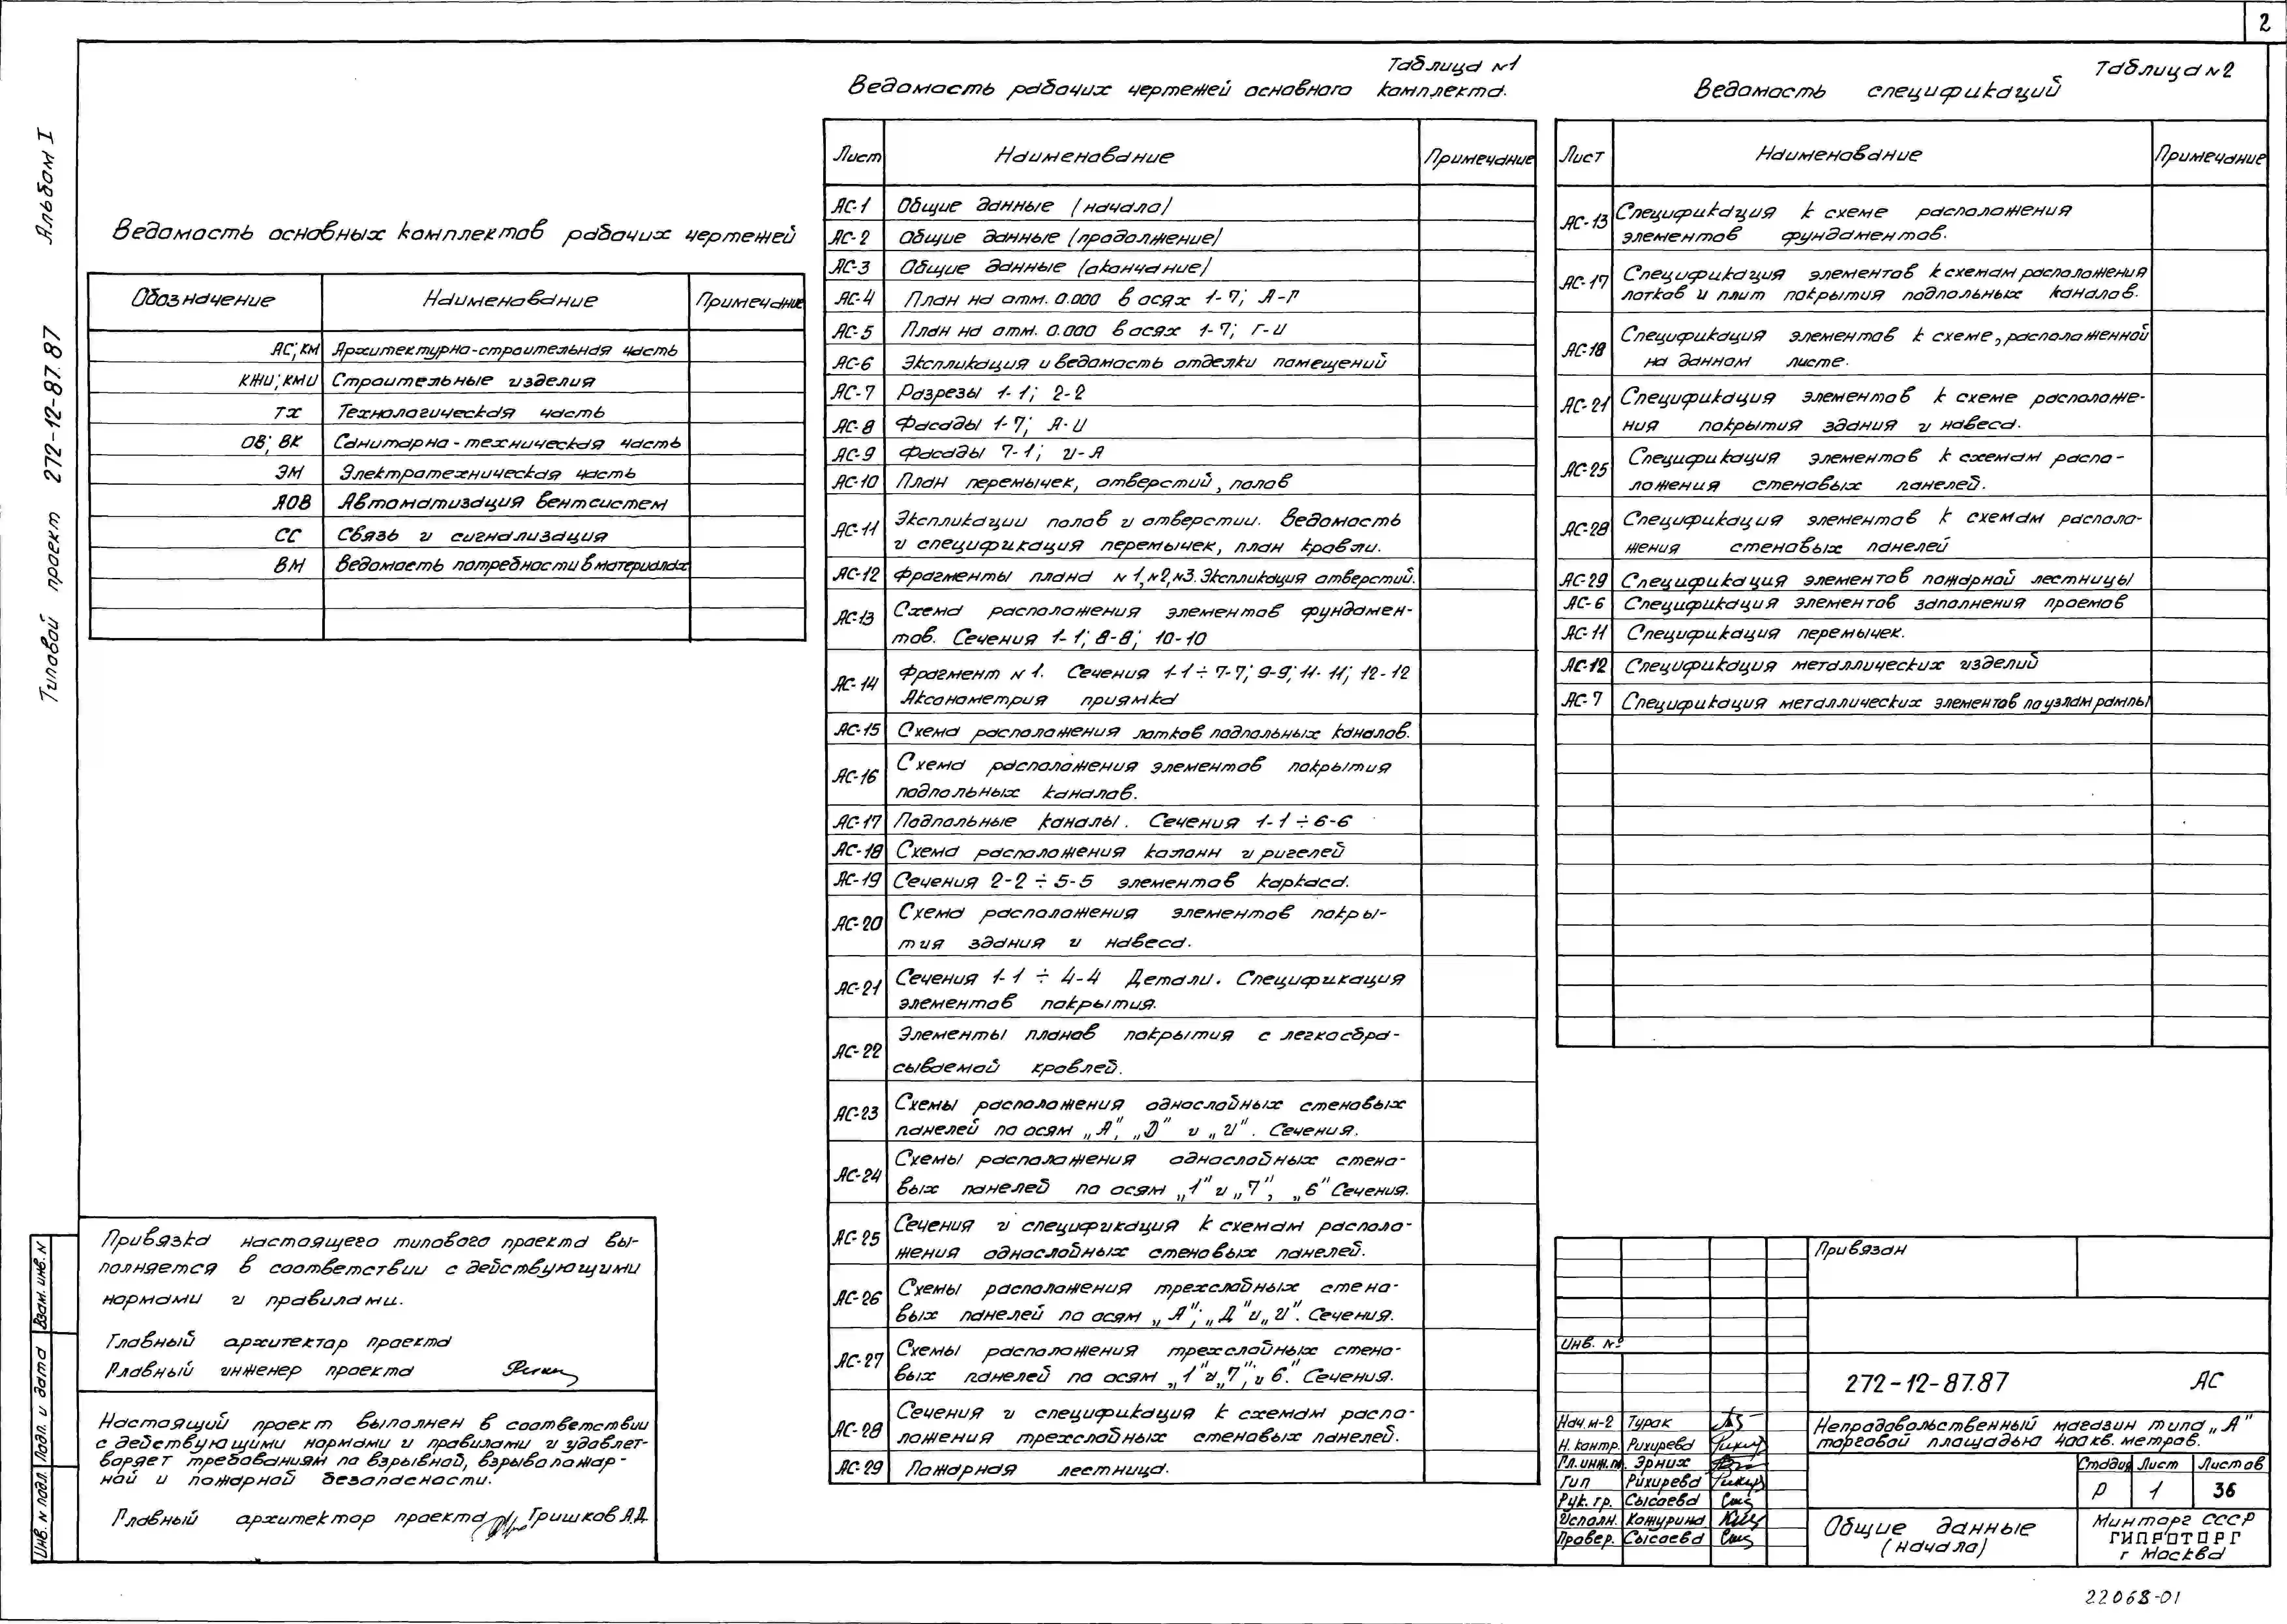 2
Альбом I
Типовой проект 272-12-87.87
Ведомость основных комплектов рабочих чертежей
Обозначение Наименование Примечание
АС; КМ Архитектурно-строительная часть
КЖИ; КМИ Строительные изделия
ТХ Технологическая часть
ОВ; ВК Санитарно-техническая часть
ЭМ Электротехническая часть
АОВ Автоматизация вентсистем
СС Связь и сигнализация
ВМ Ведомость потребности в материалах
Таблица №1
Ведомость рабочих чертежей основного комплекта.
Лист Наименование Примечание
АС-1 Общие данные (начало)
АС-2 Общие данные (продолжение)
АС-3 Общие данные (окончание)
АС-4 План на отм. 0.000 в осях 1-7; А-Г
АС-5 План на отм. 0.000 в осях 1-7; Г-И
АС-6 Экспликация и ведомость отделки помещений
АС-7 Разрезы 1-1; 2-2
АС-8 Фасады 1-7; А-И
АС-9 Фасады 7-1; И-А
АС-10 План перемычек, отверстий, полов
АС-11 Экспликации полов и отверстии. Ведомость
и спецификация перемычек, план кровли.
АС-12 Фрагменты плана №1, №2, №3. Экспликация отверстий.
АС-13 Схема расположения элементов фундамен-
тов. Сечения 1-1; 8-8; 10-10
АС-14 Фрагмент №1. Сечения 1-1÷7-7; 9-9; 11-11; 12-12
Аксонометрия приямка
АС-15 Схема расположения лотков подпольных каналов.
АС-16 Схема расположения элементов покрытия
подпольных каналов.
АС-17 Подпольные каналы. Сечения 1-1÷6-6
АС-18 Схема расположения колонн и ригелей
АС-19 Сечения 2-2÷5-5 элементов каркаса.
АС-20 Схема расположения элементов покры-
тия здания и навеса.
АС-21 Сечения 1-1÷4-4 Детали. Спецификация
элементов покрытия.
АС-22 Элементы планов покрытия с легкосбра-
сываемой кровлей.
АС-23 Схемы расположения однослойных стеновых
панелей по осям „А", „Д" и „И". Сечения.
АС-24 Схемы расположения однослойных стено-
вых панелей по осям „1" и „7", „6" Сечения.
АС-25 Сечения и спецификация к схемам располо-
жения однослойных стеновых панелей.
АС-26 Схемы расположения трехслойных стено-
вых панелей по осям „А"; „Д" и „И". Сечения.
АС-27 Схемы расположения трехслойных стено-
вых панелей по осям „1" и „7"; и 6". Сечения.
АС-28 Сечения и спецификация к схемам распо-
ложения трехслойных стеновых панелей.
АС-29 Пожарная лестница.
Таблица №2
Ведомость спецификаций
Лист Наименование Примечание
АС-13 Спецификация к схеме расположения
элементов фундаментов.
АС-17 Спецификация элементов к схемам расположения
лотков и плит покрытия подпольных каналов.
АС-18 Спецификация элементов к схеме, расположенной
на данном листе.
АС-21 Спецификация элементов к схеме расположе-
ния покрытия здания и навеса.
АС-25 Спецификация элементов к схемам распо-
ложения стеновых панелей.
АС-28 Спецификация элементов к схемам располо-
жения стеновых панелей
АС-29 Спецификация элементов пожарной лестницы
АС-6 Спецификация элементов заполнения проемов
АС-11 Спецификация перемычек.
АС-12 Спецификация металлических изделий
АС-7 Спецификация металлических элементов по узлам рампы
Привязка настоящего типового проекта вы-
полняется в соответствии с действующими
нормами и правилами.
Главный архитектор проекта
Главный инженер проекта
Настоящий проект выполнен в соответствии
с действующими нормами и правилами и удовлет-
воряет требованиям по взрывной, взрывопожар-
ной и пожарной безопасности.
Главный архитектор проекта Гришков А.Д.
Взам. инв. №
Подп. и дата
Инв. № подл.
Привязан
Инв. №
272-12-87.87 АС
Нач. м-2 Турак
Н. контр. Рихирева
Гл. инж. м. Эрних
Гип Рихирева
Рук. гр. Сысоева
Исполн. Кожурина
Провер. Сысоева
Непродовольственный магазин типа „А"
торговой площадью 400 кв. метров.
Стадия Лист Листов
Р 1 36
Общие данные
(начало)
Минторг СССР
ГИПРОТОРГ
г Москва
22068-01